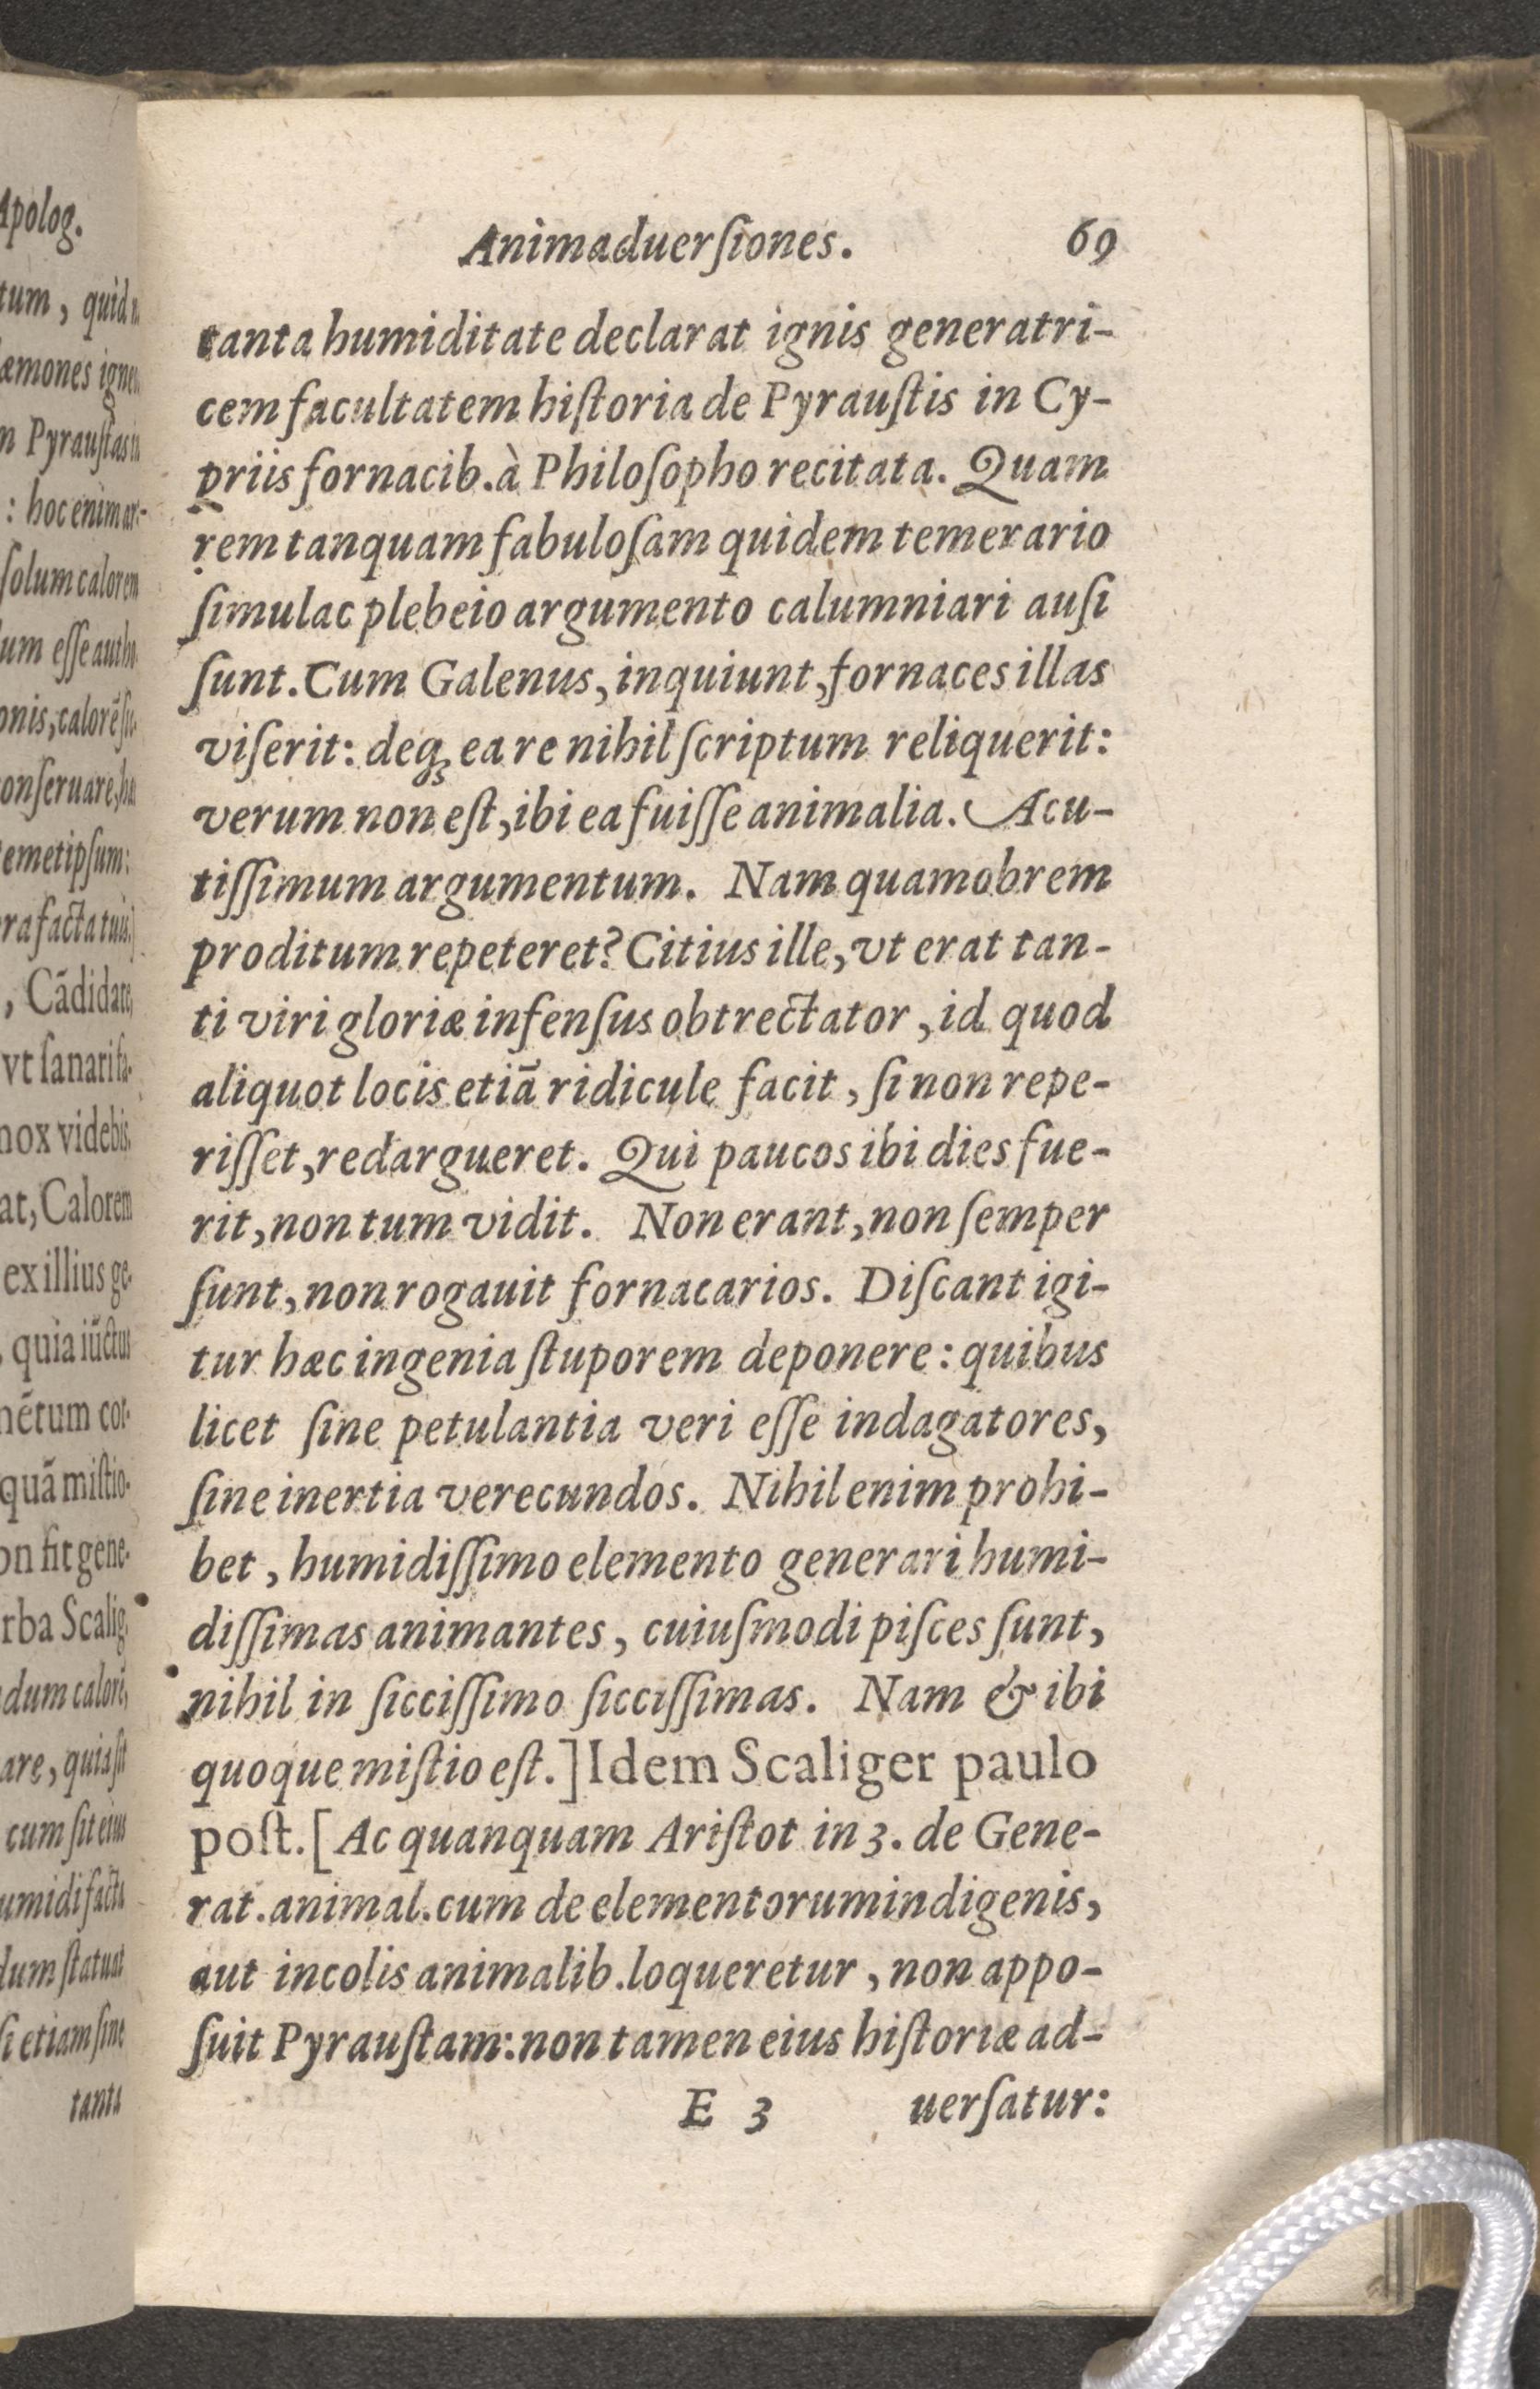 Apolog.
tum, quid
æmones igne
Pyraustas
: hoc enim ar-
solum calorem
um esse autho
onis, calorẽ
onseruare,
temetipsum:
ra facta tuis.]
, Cãdidate,
vt sanari
mox videbis.
at, Calorem
ex illius ge-
, quia iũctus
mẽtum cor-
quã mistio-
on fit gene-
rba Scalig.
dum calorẽ,
are, quia sit
cum sit eius
umidi facta
dum statuat
si etiam sine
tanta
Animaduersiones. 69
tanta humiditate declarat ignis generatri-
cem facultatem historia de Pyraustis in Cy-
priis fornacib. à Philosopho recitata. Quam
rem tanquam fabulosam quidem temerario
simulac plebeio argumento calumniari ausi
sunt. Cum Galenus, inquiunt, fornaces illas
viserit: deq; ea re nihil scriptum reliquerit:
verum non est, ibi ea fuisse animalia. Acu-
tissimum argumentum. Nam quamobrem
proditum repeteret? Citius ille, vt erat tan-
ti viri gloriæ infensus obtrectator, id quod
aliquot locis etiã ridicule facit, si non repe-
risset, redargueret. Qui paucos ibi dies fue-
rit, non tum vidit. Non erant, non semper
sunt, non rogauit fornacarios. Discant igi-
tur hæc ingenia stuporem deponere: quibus
licet sine petulantia veri esse indagatores,
sine inertia verecundos. Nihil enim prohi-
bet, humidissimo elemento generari humi-
dissimas animantes, cuiusmodi pisces sunt,
nihil in siccissimo siccissimas. Nam & ibi
quoque mistio est.] Idem Scaliger paulo
post. [Ac quanquam Aristot in 3. de Gene-
rat. animal. cum de elementorum indigenis,
aut incolis animalib. loqueretur, non appo-
suit Pyraustam: non tamen eius historiæ ad-
E 3 uersatur: